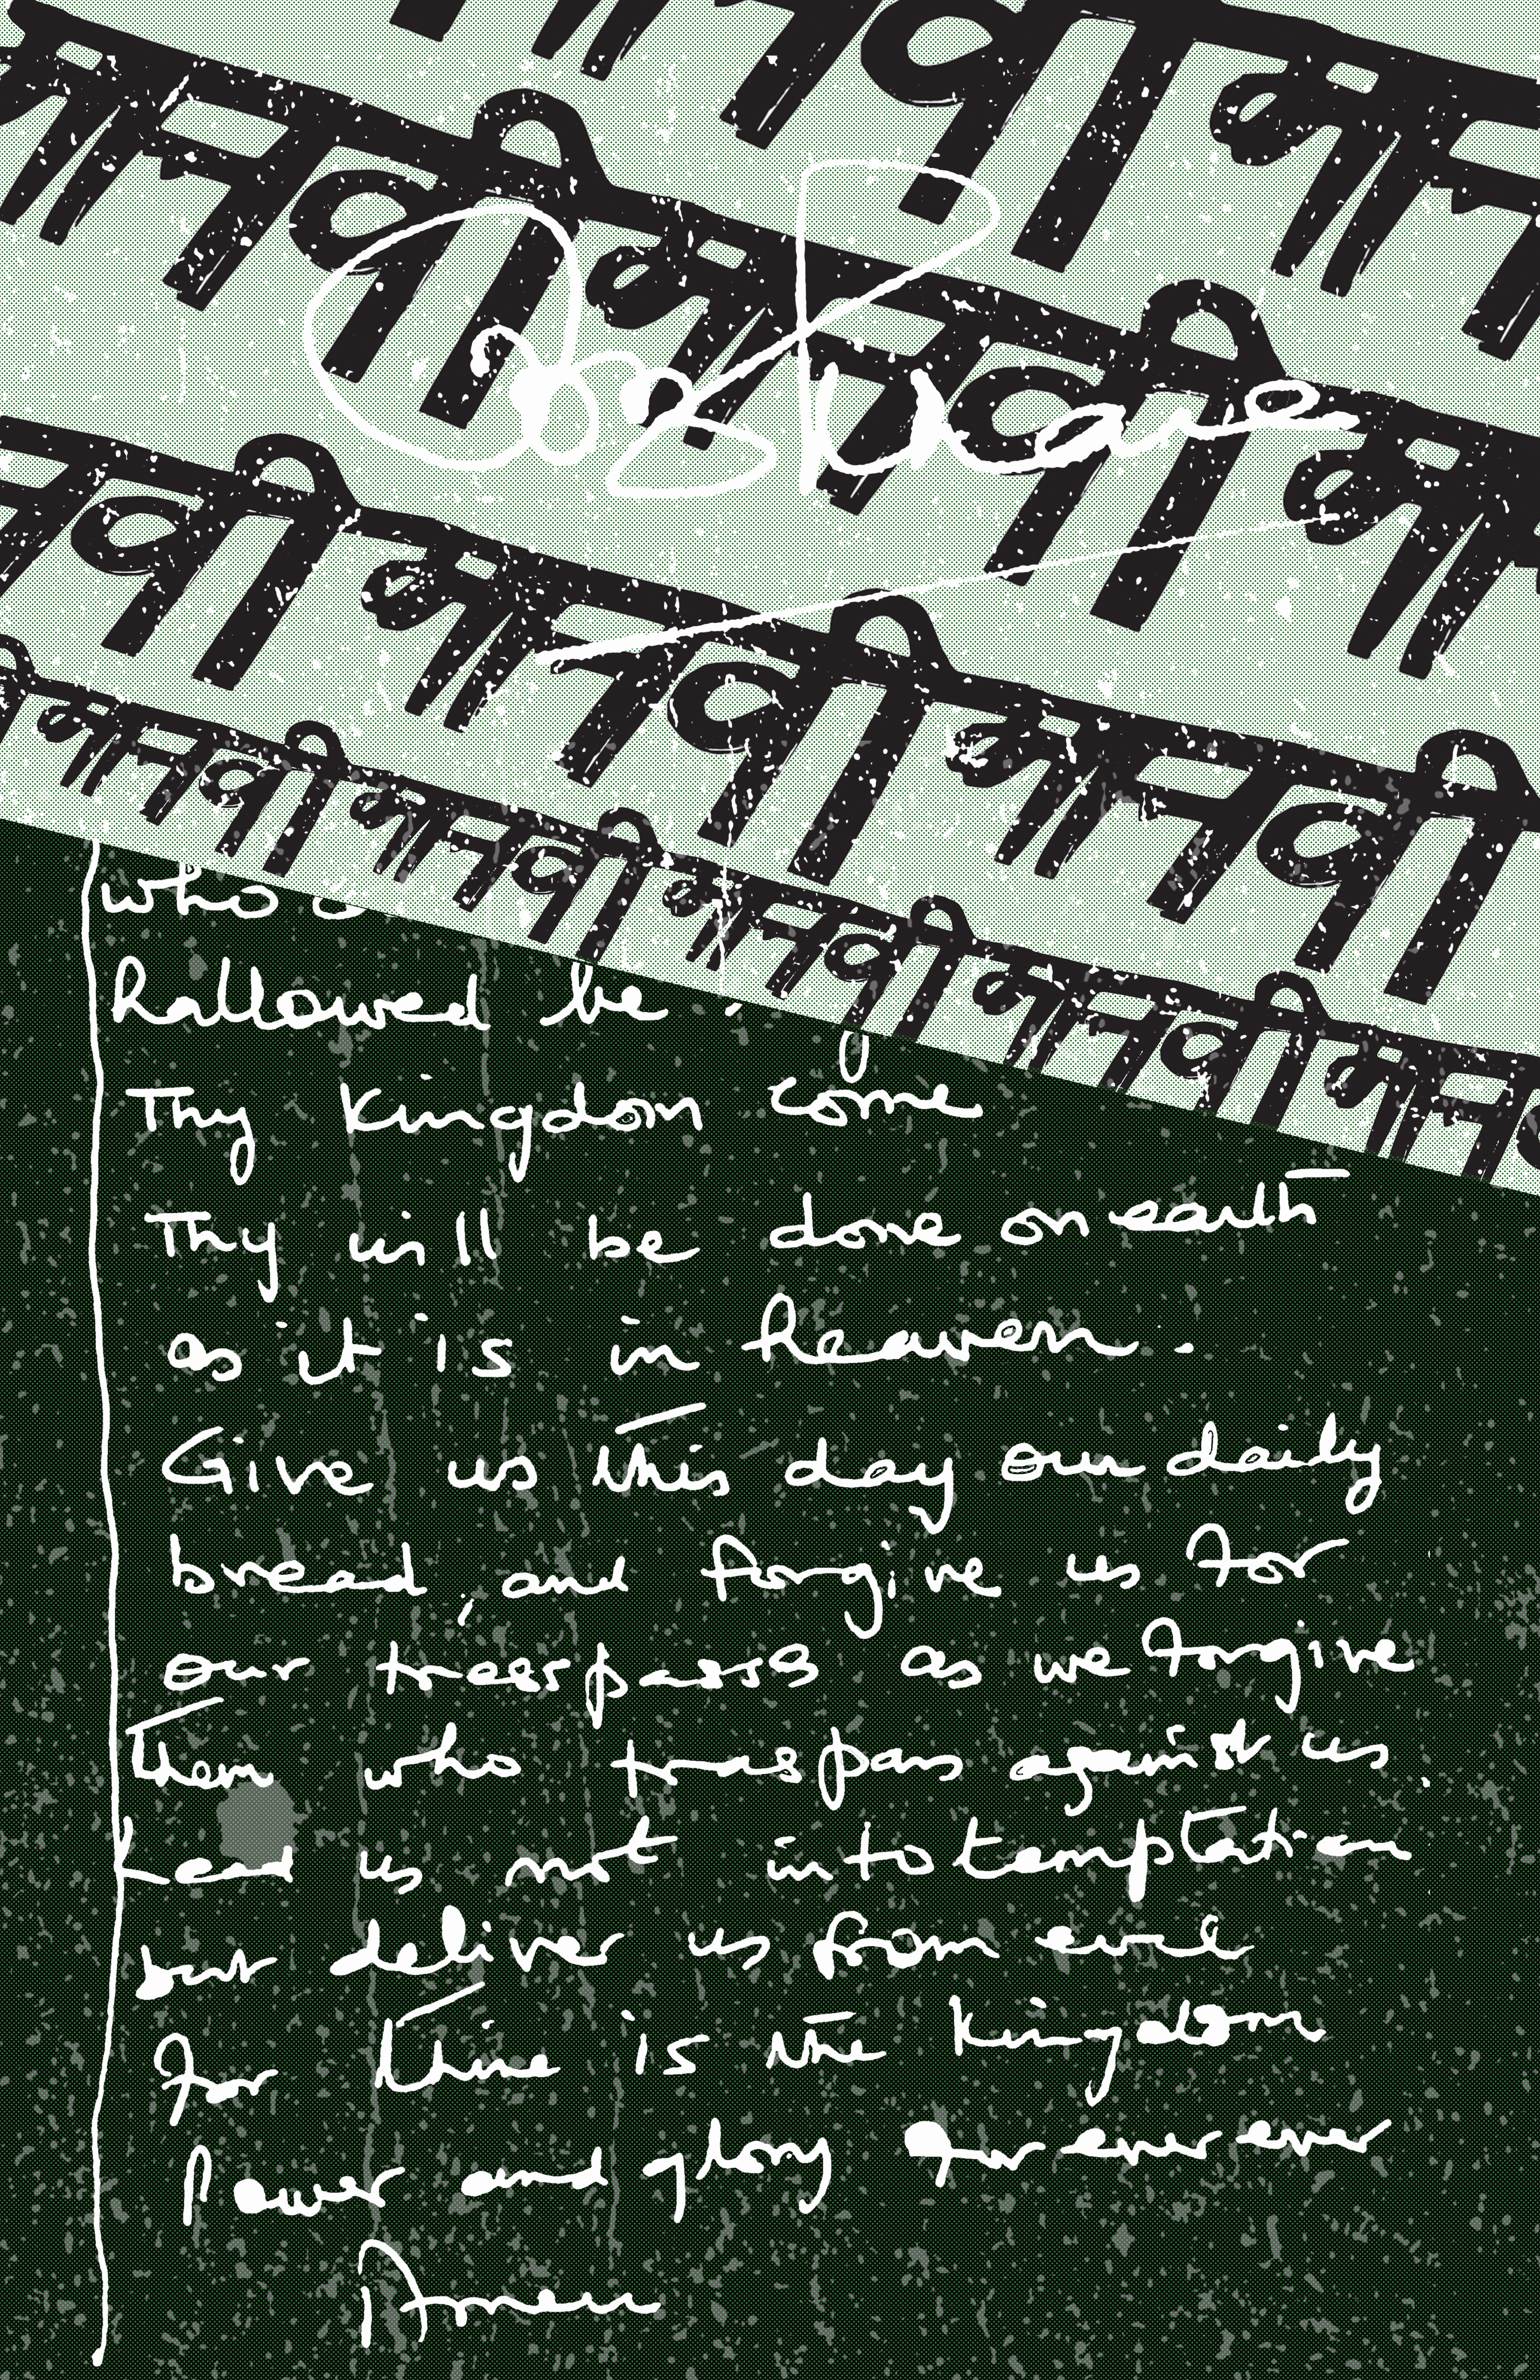 मानवी मानवी
मानवी मानवी मानवी
मानवी मानवी मानवी
मानवी मानवी मानवी मानवी मानवी
who
hallowed be
Thy Kingdom come
Thy will be done on earth
as it is in heaven.
Give us this day our daily
bread, and forgive us for
our treespasss as we forgive
Them who traspass against us.
Lead us not into temptation
but deliver us from evil
For thine is the Kingdom
Power and glory for ever ever
Amen